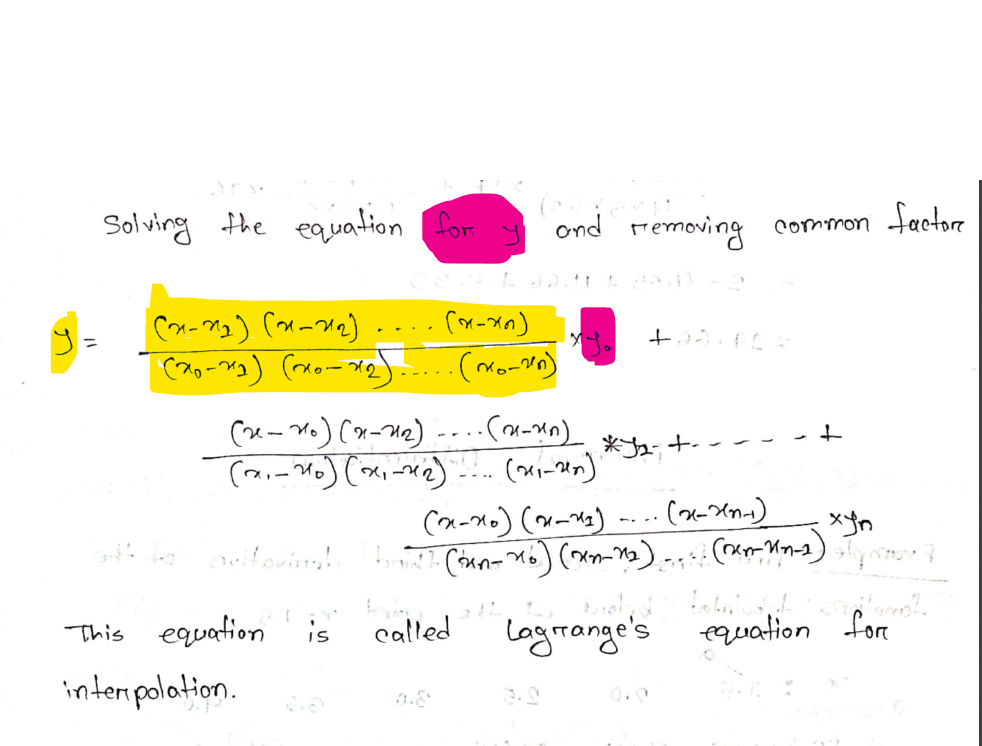 Solving the equation for y and removing common factor
y = (x-x1) (x-x2) .... (x-xn) / (x0-x1) (x0-x2) ..... (x0-xn) × y0 +
(x-x0) (x-x2) .... (x-xn) / (x1-x0) (x1-x2) .... (x1-xn) * y1 + - - - - - +
(x-x0) (x-x1) .... (x-xn-1) / (xn-x0) (xn-x1) .... (xn-xn-1) × yn
This equation is called Lagrange's equation for
interpolation.